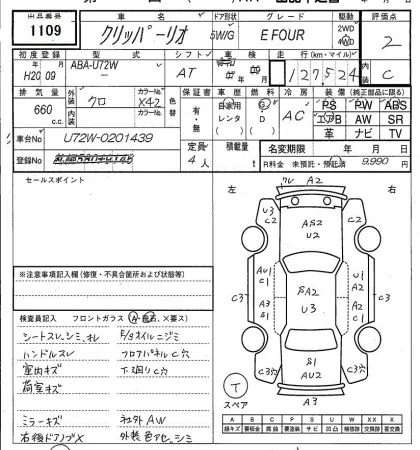 出品番号 車名 ドア形状 グレード 駆動 評価点
1109 クリッパーリオ 5W/G E FOUR 2WD 4WD 2
初度登録 型式 シフト 車検 走行(km・マイル) 内装
H20 09 ABA-U72W AT 127524 C
排気量 外装色 カラーNo. 色替 保証書 車歴 燃料 冷房 装備(純正部品に限る)
660 c.c. クロ X42 有・無 自家用 レンタ G D AC PS PW ABS
エアB AW SR
革 ナビ TV
車台No U72W-0201439
登録No
定員 4人 積載量 名変期限 年 月 日
R料金 未預託・預託済 9,990
セールスポイント
左 右
A2
U3 C2
AS2 U2
C2
C3
AU1 C1
A3 S1
SA2
U3
A1 C1
C3
C3穴
S1
AU2
C3穴
A3
※注意事項記入欄(修復・不具合箇所および状態等)
検査員記入 フロントガラス
シートスレ、シミ、オレ E/gオイルニジミ
ハンドルスレ フロアパネルC穴
室内キズ 下廻りC穴
荷室キズ
ミラーキズ 社外AW
右後ドアノブX 外装色アセ、シミ
T
スペア
A B C P S U W X XX
線キズ 要板金 腐蝕 要塗装 サビ 凹凸 補修跡 交換跡 要交換